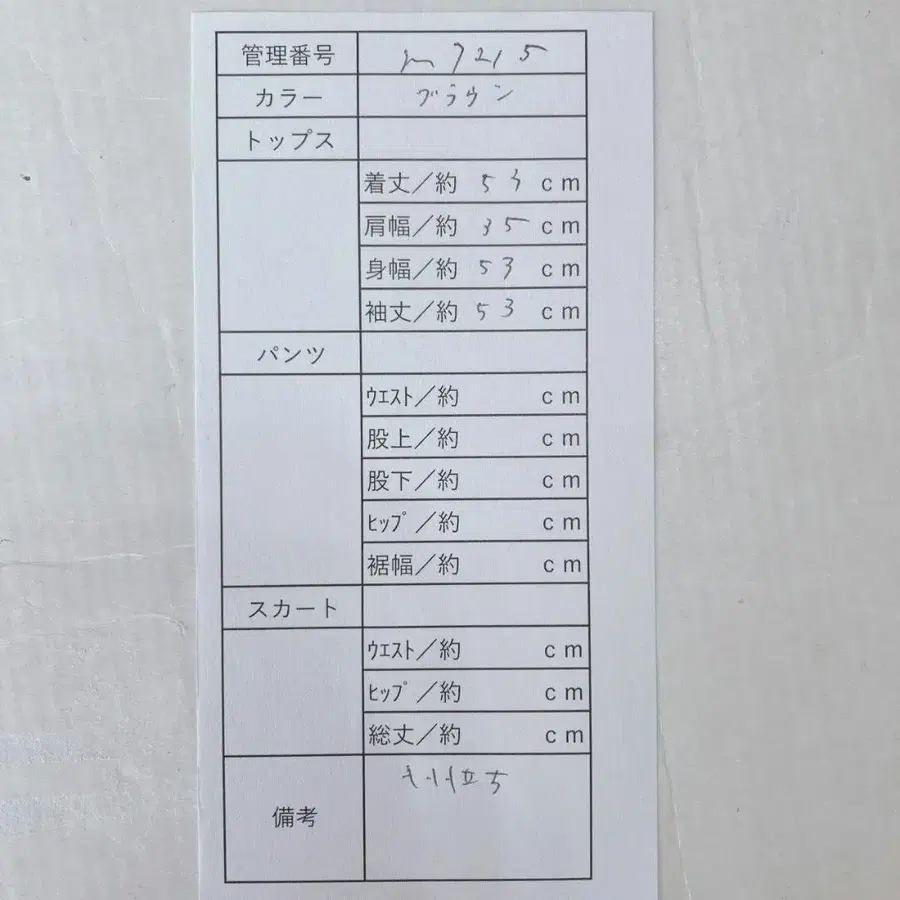 管理番号 m7215
カラー ブラウン
トップス
着丈／約 cm
肩幅／約 35 cm
身幅／約 53 cm
袖丈／約 53 cm
パンツ
ｳｴｽﾄ／約 cm
股上／約 cm
股下／約 cm
ﾋｯﾌﾟ／約 cm
裾幅／約 cm
スカート
ｳｴｽﾄ／約 cm
ﾋｯﾌﾟ／約 cm
総丈／約 cm
備考